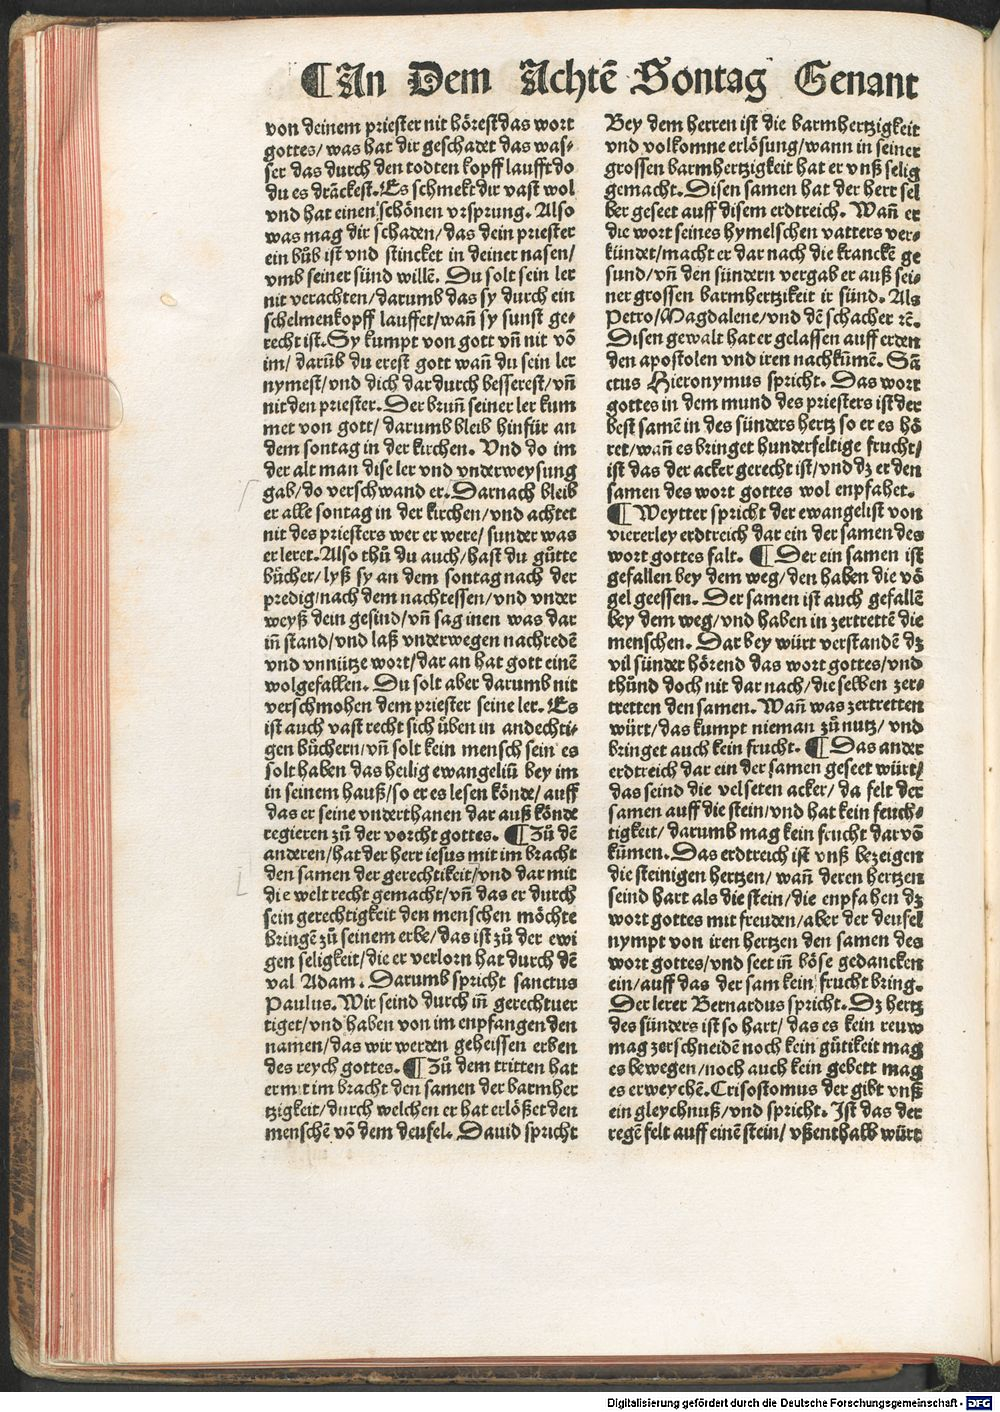 ¶An Dem Achtē Sontag Genant
von deinem priester nit hörest das wort
gottes/was hat dir geschadet das was⸗
ser das durch den todten kopff laufft do
du es drāckest. Es schmekt dir vast wol
vnd hat einen schönen vrsprung. Also
was mag dir schaden/das dein priester
ein bůb ist vnd stincket in deiner nasen/
vmb seiner sünd willē. Du solt sein ler
nit verachten/darumb das sy durch ein
schelmenkopff lauffet/wañ sy sunst ge⸗
recht ist. Sy kumpt von gott vñ nit vō
im/darūb du erest gott wañ du sein ler
nymest/vnd dich dar durch besserest/vñ
nit den priester. Der brunn̄ seiner ler kum
met von gott/darumb bleib hinfür an
dem sontag in der kirchen. Vnd do im
der alt man dise ler vnd vnderweysung
gab/do verschwand er. Darnach bleib
er alle sontag in der kirchen/vnd achtet
nit des priesters wer er were/sunder was
er leret. Also thů du auch/hast du gůtte
bücher/lyß sy an dem sontag nach der
predig/nach dem nachtessen/vnd vnder
weyß dein gesind/vñ sag inen was dar
iñ stand/vnd laß vnderwegen nachredē
vnd vnnütze wort/dar an hat gott einē
wolgefallen. Du solt aber darumb nit
verschmohen dem priester seine ler. Es
ist auch vast recht sich üben in andechti⸗
gen büchern/vñ solt kein mensch sein es
solt haben das heilig ewangeliū bey im
in seinem hauß/so er es lesen könde/auff
das er seine vnderthanen dar auß könde
regieren zů der vorcht gottes. ¶Zů dē
anderen/hat der herr iesus mit im bracht
den samen der gerechtikeit/vnd dar mit
die welt recht gemacht/vñ das er durch
sein gerechtigkeit den menschen möchte
bringē zů seinem erbe/das ist zů der ewi
gen seligkeit/die er verlorn hat durch dē
val Adam. Darumb spricht sanctus
Paulus. Wir seind durch iñ gerechtuer
tiget/vnd haben von im enpfangen den
namen/das wir werden geheissen erben
des reych gottes. ¶Zů dem tritten hat
er mit im bracht den samen der barmher
tzigkeit/durch welchen er hat erlößet den
menschē vō dem deufel. Dauid spricht
Bey dem herren ist die barmhertzigkeit
vnd volkomne erlösung/wann in seiner
grossen barmhertzigkeit hat er vnß selig
gemacht. Disen samen hat der herr sel
ber geseet auff disem erdtreich. Wañ er
die wort seines hymelschen vatters ver⸗
kündet/macht er dar nach die kranckē ge
sund/vñ den sündern vergab er auß sei⸗
ner grossen barmhertzikeit ir sünd. Als
Petro/Magdalene/vnd dē schacher ꝛc̄.
Disen gewalt hat er gelassen auff erden
den apostolen vnd iren nachkūmē. Sā
ctus Hieronymus spricht. Das wort
gottes in dem mund des priesters ist der
best samē in des sünders hertz so er es hö
ret/wañ es bringet hunderfeltige frucht/
ist das der acker gerecht ist/vnd dz er den
samen des wort gottes wol enpfahet.
¶Weytter spricht der ewangelist von
viererley erdtreich dar ein der samen des
wort gottes falt. ¶Der ein samen ist
gefallen bey dem weg/den haben die vö
gel geessen. Der samen ist auch gefallē
bey dem weg/vnd haben in zertrettē die
menschen. Dar bey würt verstandē dz
vil sünder hörend das wort gottes/vnd
thůnd doch nit dar nach/die selben zer⸗
tretten den samen. Wañ was zertretten
würt/das kumpt nieman zů nutz/vnd
bringet auch kein frucht. ¶Das ander
erdtreich dar ein der samen geseet würt/
das seind die velseten acker/da felt der
samen auff die stein/vnd hat kein feuch⸗
tigkeit/darumb mag kein frucht dar vō
kūmen. Das erdtreich ist vnß bezeigen
die steinigen hertzen/wañ deren hertzen
seind hart als die stein/die enpfahen dz
wort gottes mit freuden/aber der deufel
nympt von iren hertzen den samen des
wort gottes/vnd seet iñ böse gedancken
ein/auff das der sam kein frucht bring.
Der lerer Bernardus spricht. Dz hertz
des sünders ist so hart/das es kein reuw
mag zerschneidē noch kein gütikeit mag
es bewegen/noch auch kein gebett mag
es erweychē. Crisostomus der gibt vnß
ein gleychnuß/vnd spricht. Ist das der
regē felt auff einē stein/vßenthalb würt
Digitalisierung gefördert durch die Deutsche Forschungsgemeinschaft - DFG